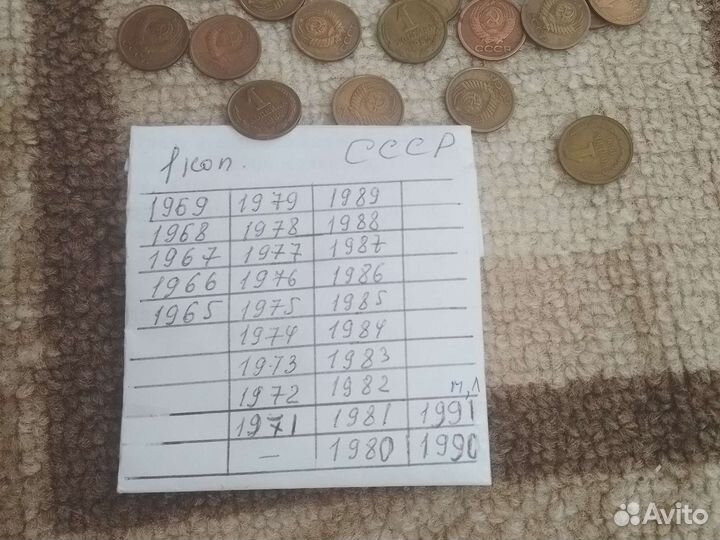 1
СССР
1
1
1коп. СССР
1969 1979 1989
1968 1978 1988
1967 1977 1987
1966 1976 1986
1965 1975 1985
1974 1984
1973 1983
1972 1982 м,л
1971 1981 1991
— 1980 1990
Avito